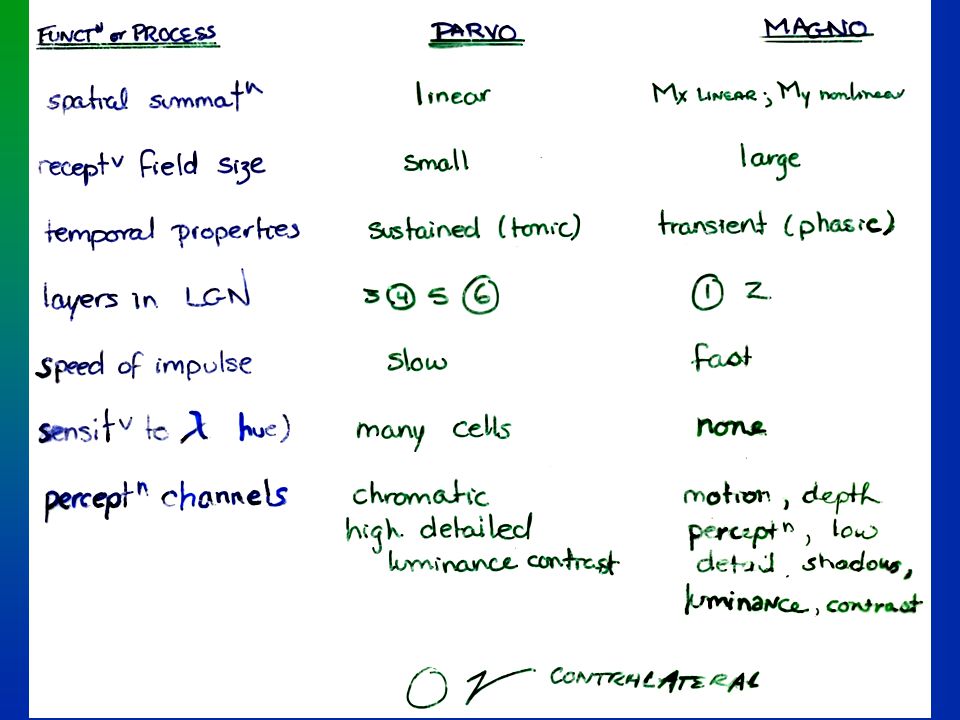 FUNCTᴺ or PROCESS PARVO MAGNO
spatial summatⁿ linear Mx LINEAR; My nonlinear
receptᵛ field size small large
temporal properties sustained (tonic) transient (phasic)
layers in LGN 3 4 5 6 1 2
speed of impulse slow fast
sensitᵛ to λ hue) many cells none
perceptⁿ channels chromatic motion, depth
high detailed perceptⁿ, low
luminance contrast detail shadows,
luminance, contrast
CONTRALATERAL